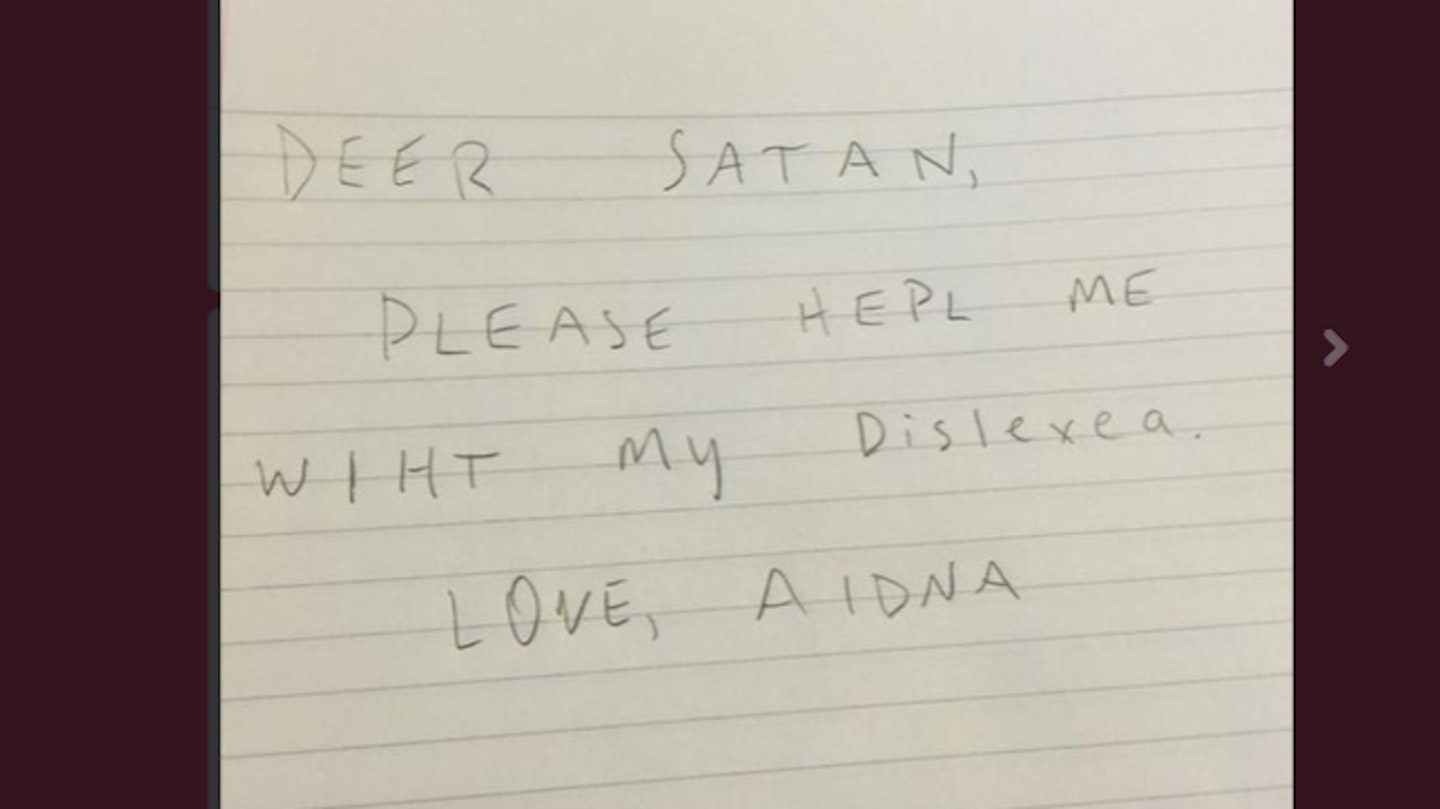 DEER SATAN,
PLEASE HEPL ME
WIHT MY Dislexea.
LOVE, AIDNA